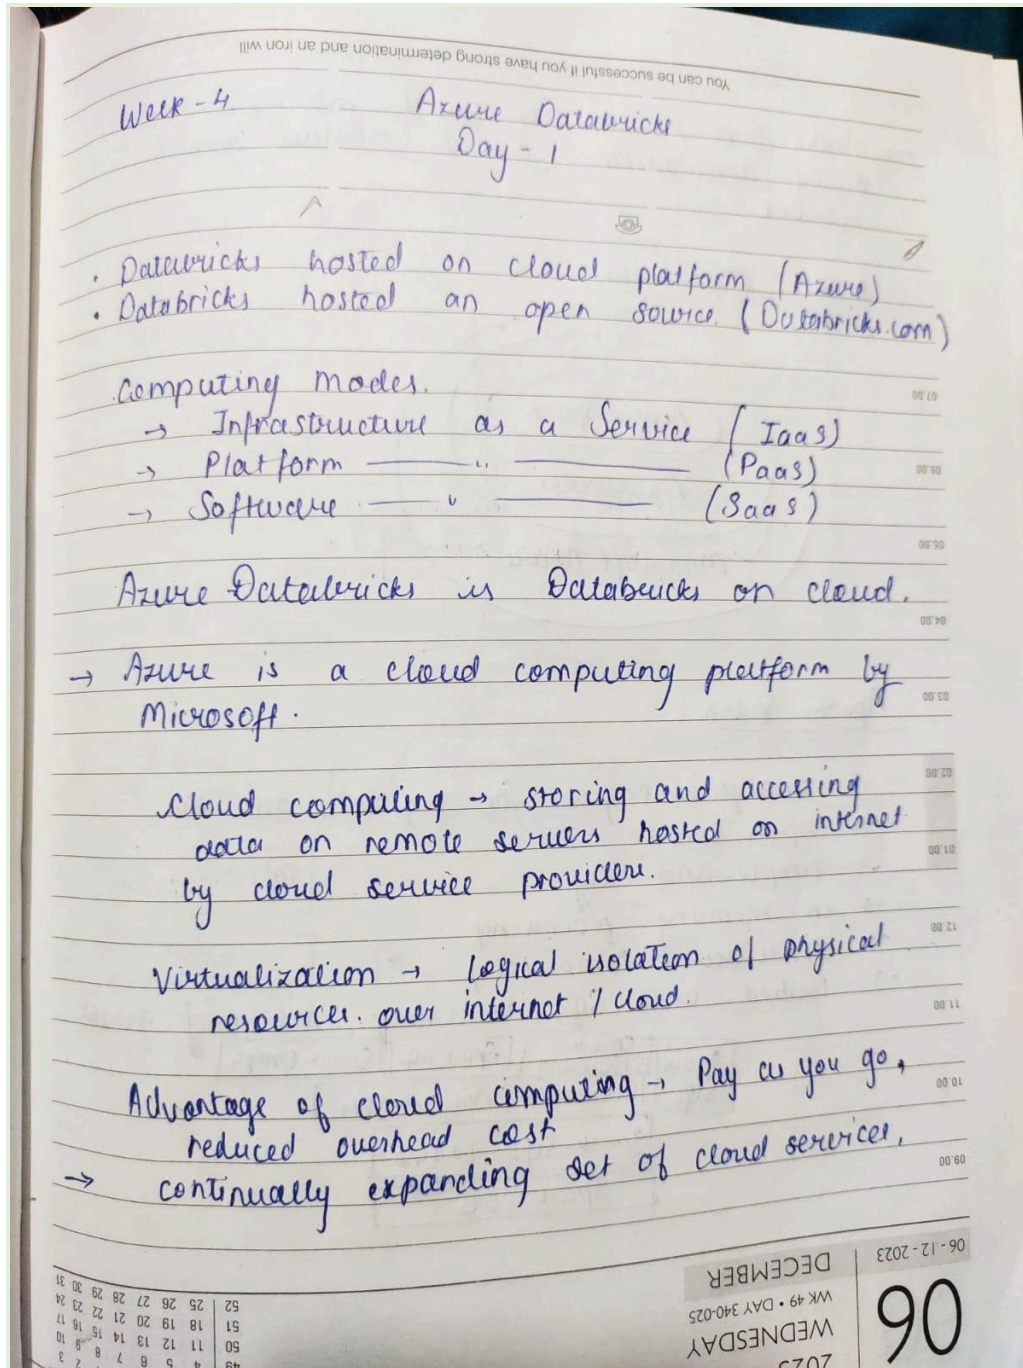 You can be successful if you have strong determination and an iron will
Week - 4 Azure Databricks
Day - 1
. Databricks hosted on cloud platform (Azure)
. Databricks hosted an open source. (Databricks.com)
07.00
Computing modes.
→ Infrastructure as a Service (IaaS)
→ Platform —— " —— (PaaS)
06.00
→ Software —— " —— (SaaS)
05.00
Azure Databricks is Databricks on cloud.
04.00
→ Azure is a cloud computing platform by
03.00
Microsoft.
02.00
Cloud computing → storing and accessing
data on remote servers hosted on internet
01.00
by cloud service providers.
12.00
Virtualization → Logical isolation of physical
resources. over internet / cloud.
11.00
Advantage of cloud computing → Pay as you go,
10.00
reduced overhead cost
→ continually expanding set of cloud services.
09.00
06-12-2023
DECEMBER
06
WK 49 • DAY 340-025
WEDNESDAY
2023
52 25 26 27 28 29 30 31
51 18 19 20 21 22 23 24
50 11 12 13 14 15 16 17
49 4 5 6 7 8 9 10